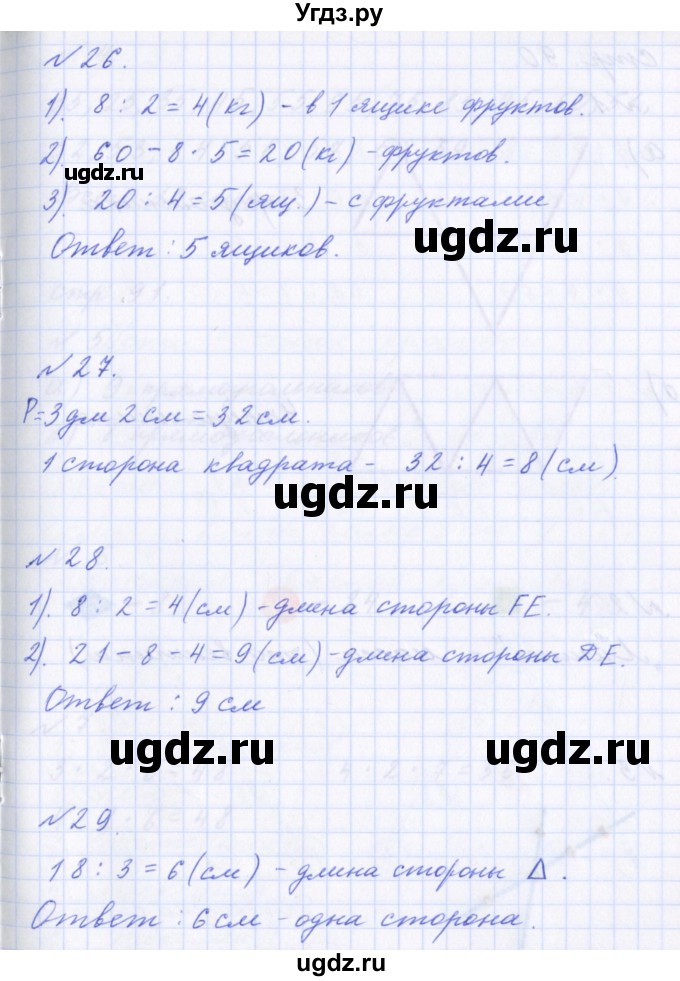 Угдз.ру
№26.
1). 8 : 2 = 4(кг) - в 1 ящике фруктов.
2). 60 - 8 · 5 = 20(кг) - фруктов.
ugdz.ru
3). 20 : 4 = 5(ящ.) - с фруктами
Ответ : 5 ящиков.
ugdz.ru
№27.
P=3дм 2см = 32см.
1 сторона квадрата - 32 : 4 = 8(см).
ugdz.ru
№28.
1). 8 : 2 = 4(см) - длина стороны FE.
2). 21 - 8 - 4 = 9(см) - длина стороны DE.
Ответ : 9 см
ugdz.ru
ugdz.ru
№29.
18 : 3 = 6(см) - длина стороны Δ.
Ответ : 6см - одна сторона.
ugdz.ru